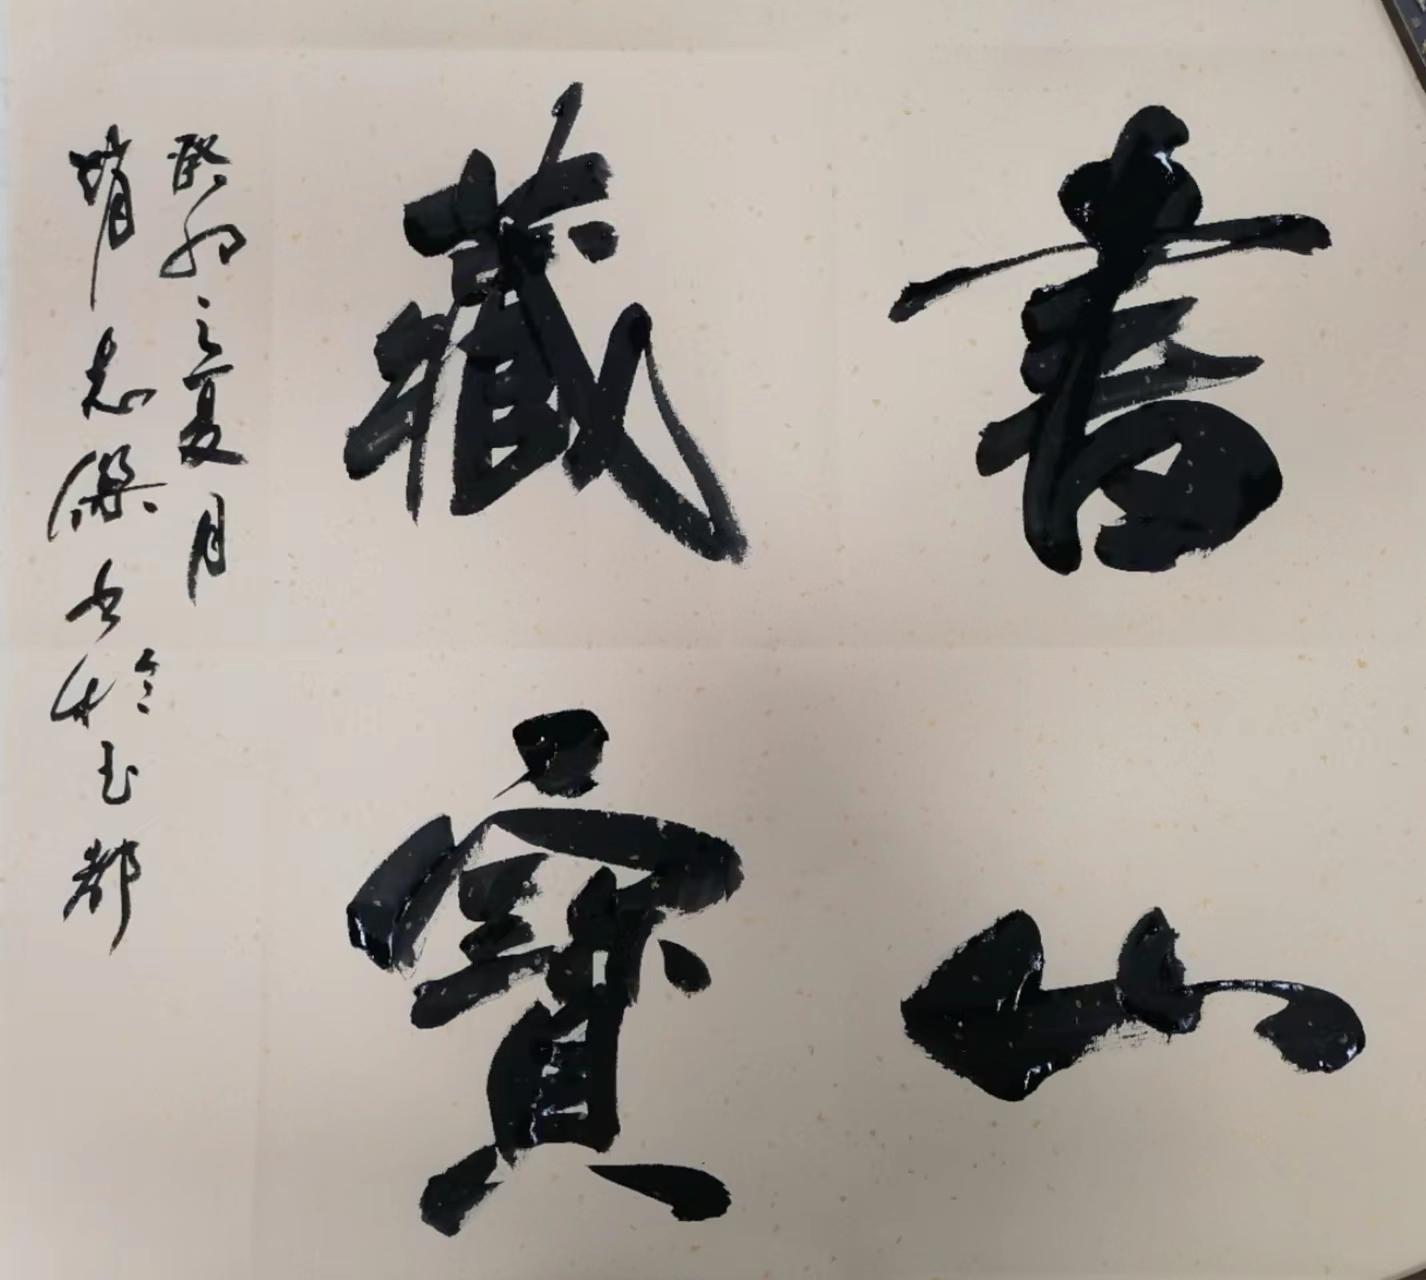 書山
藏寶
癸卯之夏月
志傑书於玉都